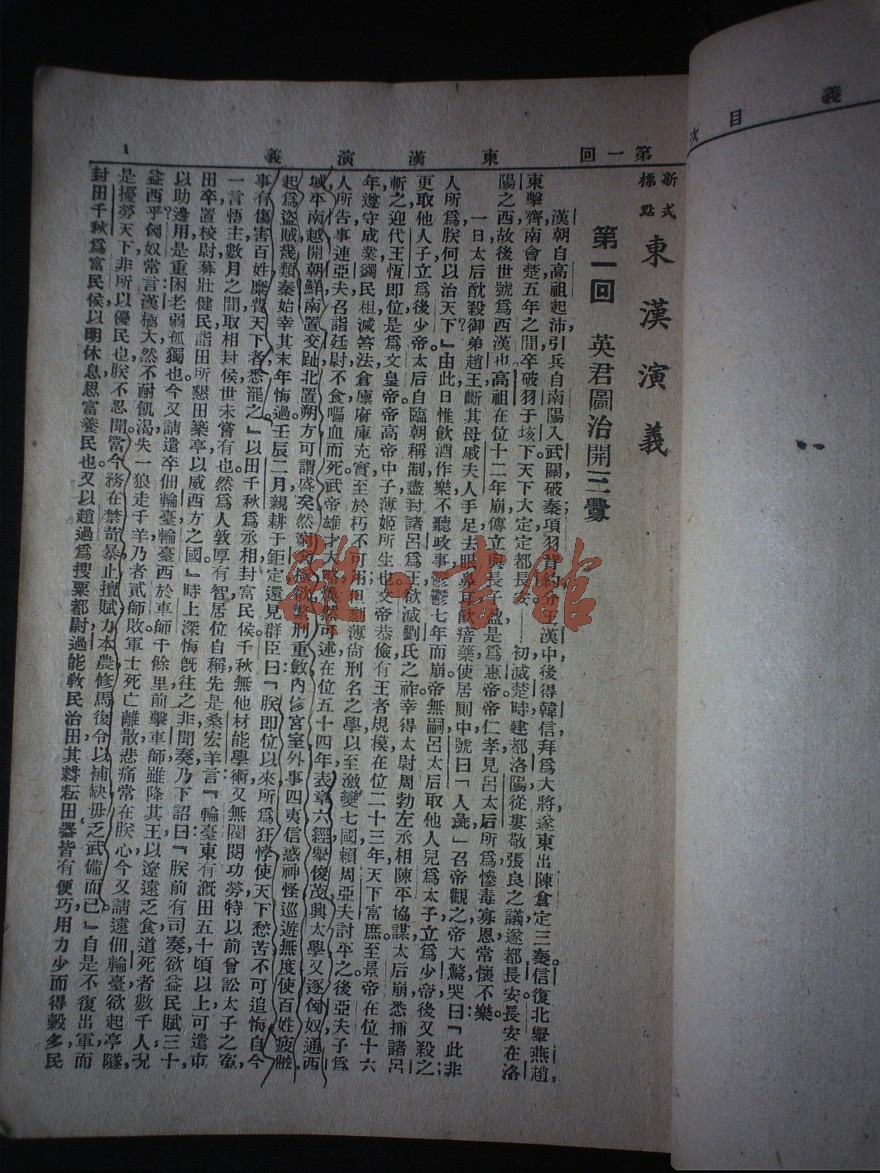 義 目
第一回 東漢演義 1
新式標點 東漢演義
第一回 英君圖治開三舋
漢朝自高祖起沛，引兵自南陽入武關破秦，項羽背約分王漢中，後得韓信拜爲大將，遂東出陳倉，定三秦，信復北舉燕趙，
東擊齊，南會楚，五年之間，卒破羽于垓下，天下大定，定都長安——初滅楚時，建都洛陽，從婁敬張良之議，遂都長安，長安在洛
陽之西，故後世號爲西漢也，高祖在位十二年崩，傳立與長子盈，是爲惠帝，帝仁孝，見呂太后所爲慘毒寡恩，常懷不樂。
一日太后酖殺御弟趙王，斷其母戚夫人手足，去眼，飲瘖藥，使居厠中，號曰『人彘』召帝觀之，帝大驚哭曰『此非
人所爲，朕何以治天下？』由此日惟飲酒作樂，不聽政事，鬱鬱七年而崩。帝無嗣，呂太后取他人兒爲太子，立爲少帝，後又殺之；
更取他人子立爲後少帝。太后自臨朝稱制，盡封諸呂爲王，欲滅劉氏之祚，幸得太尉周勃左丞相陳平協謀，太后崩，悉捕諸呂
斬之，迎代王恆即位，是爲文皇帝，帝高帝中子，薄姬所生也，文帝恭儉，有王者規模，在位二十三年，天下富庶。至景帝在位十六
年，遵守成業，蠲民租，減笞法，倉廩府庫充實，至於朽不可用，但刻薄尙刑名之學，以至激變七國，賴周亞夫討平之，後亞夫子爲
人所告，事連亞夫，召詣廷尉，不食嘔血而死。武帝雄才大略，煥然可述，在位五十四年，表章六經，舉俊茂，興太學，又逐匈奴，通西
域，平南越，開朝鮮，南置交趾，北置朔方，可謂盛矣。然窮奢極欲，繁刑重斂，內侈宮室，外事四夷，信惑神怪，巡遊無度，使百姓疲敝，
起爲盜賊，幾類秦始，幸其末年悔過。壬辰二月，親耕于鉅定，還見群臣曰：『朕即位以來，所爲狂悖，使天下愁苦，不可追悔，自今
事有傷害百姓，糜費天下者，悉罷之。』以田千秋爲丞相，封富民侯。千秋無他材能學術，又無閥閱功勞，特以前曾訟太子之寃，
一言悟主，數月之間，取相封侯，世未嘗有也，然爲人敦厚有智，居位自稱。先是桑宏羊言：『輪臺東有漑田五十頃以上，可遣屯
田卒，置校尉，募壯健民詣田所，懇田築亭，以威西方之國。』時上深悔旣往之非，聞奏乃下詔曰：『朕前有司奏欲益民賦三十
以助邊用，是重困老弱孤獨也。今又請遣卒佃輪臺，輪臺西於車師千餘里，前擊車師，雖降其王，以遼遠乏食，道死者數千人，況
益西乎？匈奴常言漢極大，然不耐飢渴，失一狼，走千羊，乃者貳師敗，軍士死亡離散，悲痛常在朕心，今又請遠佃輪臺，欲起亭隧，
是擾勞天下，非所以優民也，朕不忍聞。當今務在禁苛暴，止擅賦，力本農，修馬復令，以補缺，毋乏武備而已。』自是不復出軍，而
封田千秋爲富民侯，以明休息，思富養民也。又以趙過爲搜粟都尉，過能敎民治田，其耕耘田器，皆有便巧，用力少而得穀多，民
雜一書館